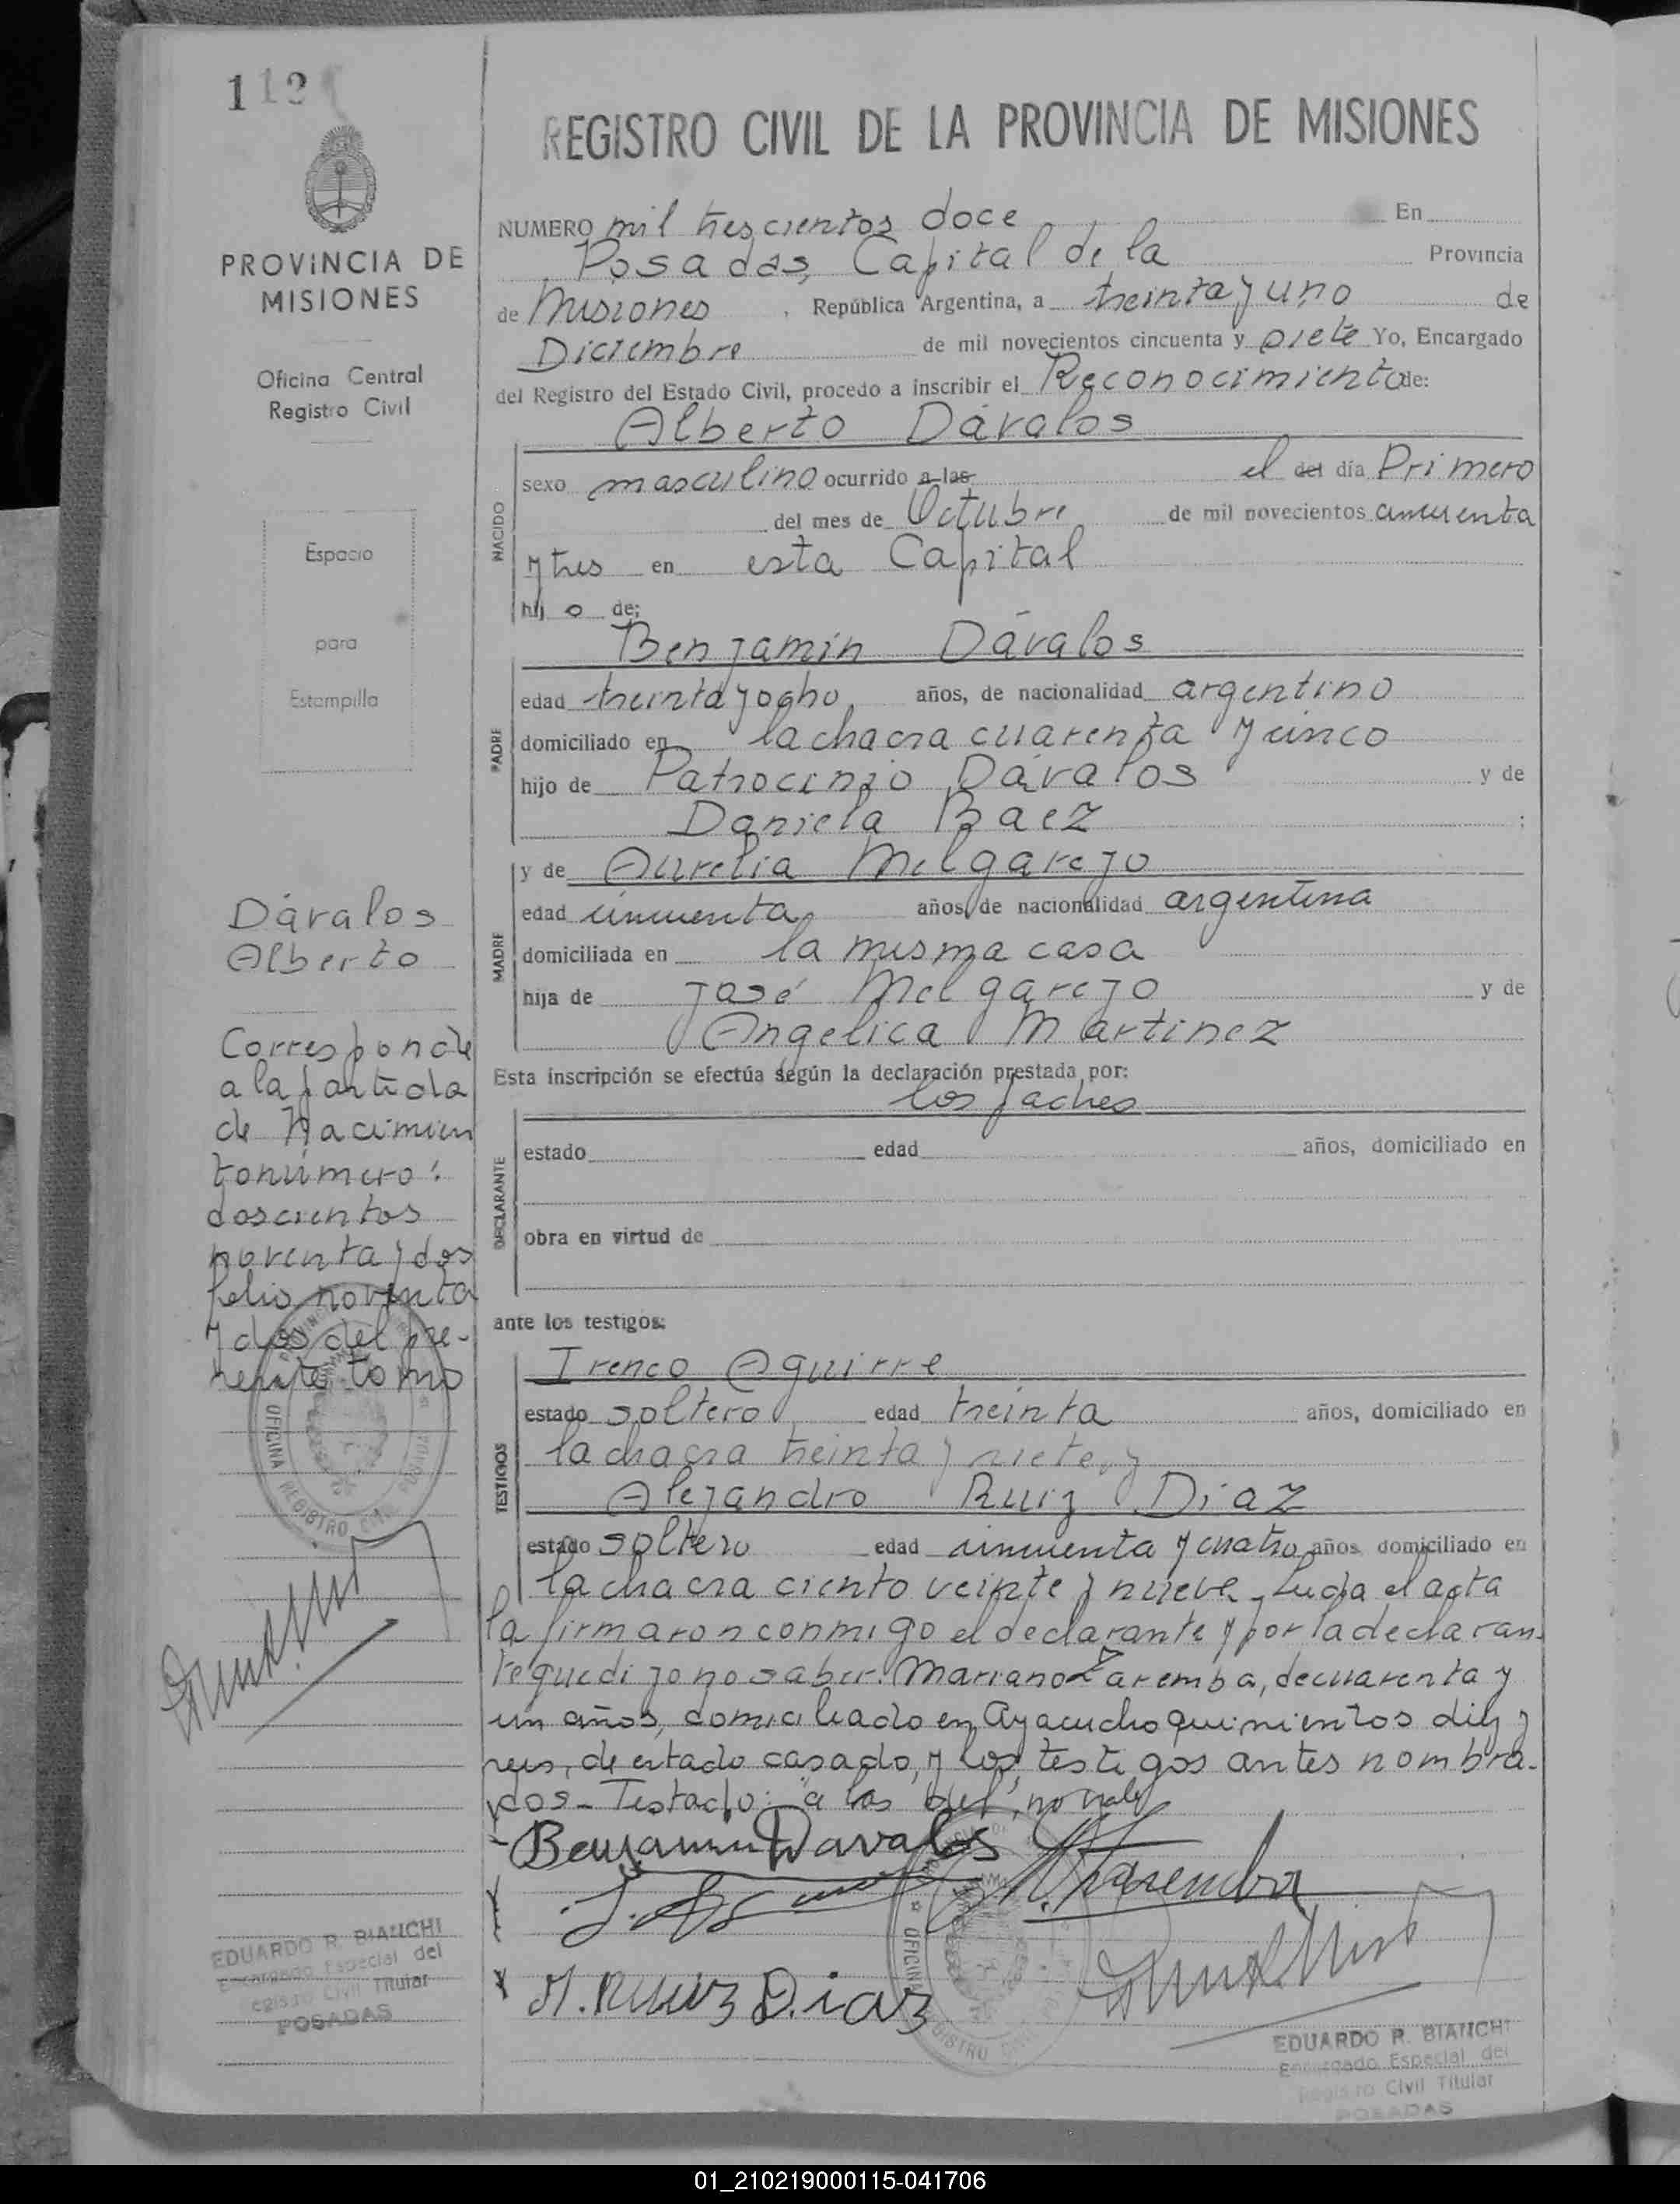 112
REGISTRO CIVIL DE LA PROVINCIA DE MISIONES
PROVINCIA DE
MISIONES
Oficina Central
Registro Civil
Espacio
para
Estampilla
Dávalos
Alberto
Corresponde
a la partida
de Nacimien
to número:
doscientos
noventa y dos
folio noventa
y dos del pre-
sente tomo
OFICINA REGISTRO CIVIL
EDUARDO R. BIANCHI
Encargado Especial del
Registro Civil Titular
POSADAS
NUMERO mil trescientos doce En
Posadas, Capital de la Provincia
de Misiones, República Argentina, a treinta y uno de
Diciembre de mil novecientos cincuenta y siete Yo, Encargado
del Registro del Estado Civil, procedo a inscribir el Reconocimiento de:
Alberto Dávalos
NACIDO
sexo masculino ocurrido a las el del día Primero
del mes de Octubre de mil novecientos cincuenta
y tres en esta Capital
hijo de:
Benjamín Dávalos
PADRE
edad treinta y ocho años, de nacionalidad argentino
domiciliado en la chacra cuarenta y cinco
hijo de Patrocinio Dávalos y de
Daniela Baez ;
MADRE
y de Aurelia Melgarejo
edad cincuenta años, de nacionalidad argentina
domiciliada en la misma casa
hija de José Melgarejo y de
Angelica Martinez
Esta inscripción se efectúa según la declaración prestada por:
los padres
DECLARANTE
estado edad años, domiciliado en
obra en virtud de
ante los testigos:
TESTIGOS
Ireneo Aguirre
estado soltero edad treinta años, domiciliado en
la chacra treinta y siete, y
Alejandro Ruiz Diaz
estado soltero edad cincuenta y cuatro años domiciliado en
la chacra ciento veinte y nueve. Leída el acta
la firmaron conmigo el declarante y por la declaran-
te que dijo no saber. Mariano Zaremba, de cuarenta y
un años, domiciliado en Ayacucho quinientos diez y
seis, de estado casado, y los testigos antes nombra-
dos - Testado: "a las del", no vale
Benjamin Davalos
M. Zaremba
A. Ruiz Diaz
OFICINA REGISTRO
EDUARDO R. BIANCHI
Encargado Especial del
Registro Civil Titular
POSADAS
01_210219000115-041706